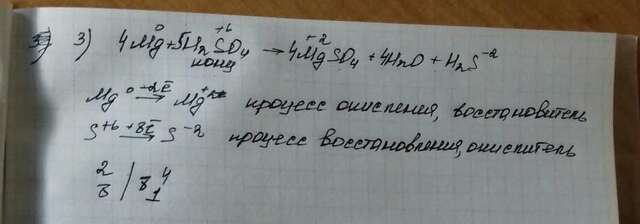 3) 4Mg⁰+5H₂S⁺⁶O₄ → 4Mg⁺²SO₄ + 4H₂O + H₂S⁻²
конц
Mg⁰ +2ē→ Mg⁺² процесс окисления, восстановитель
S⁺⁶ +8ē→ S⁻² процесс восстановления, окислитель
2 / 8 4
8 / 1